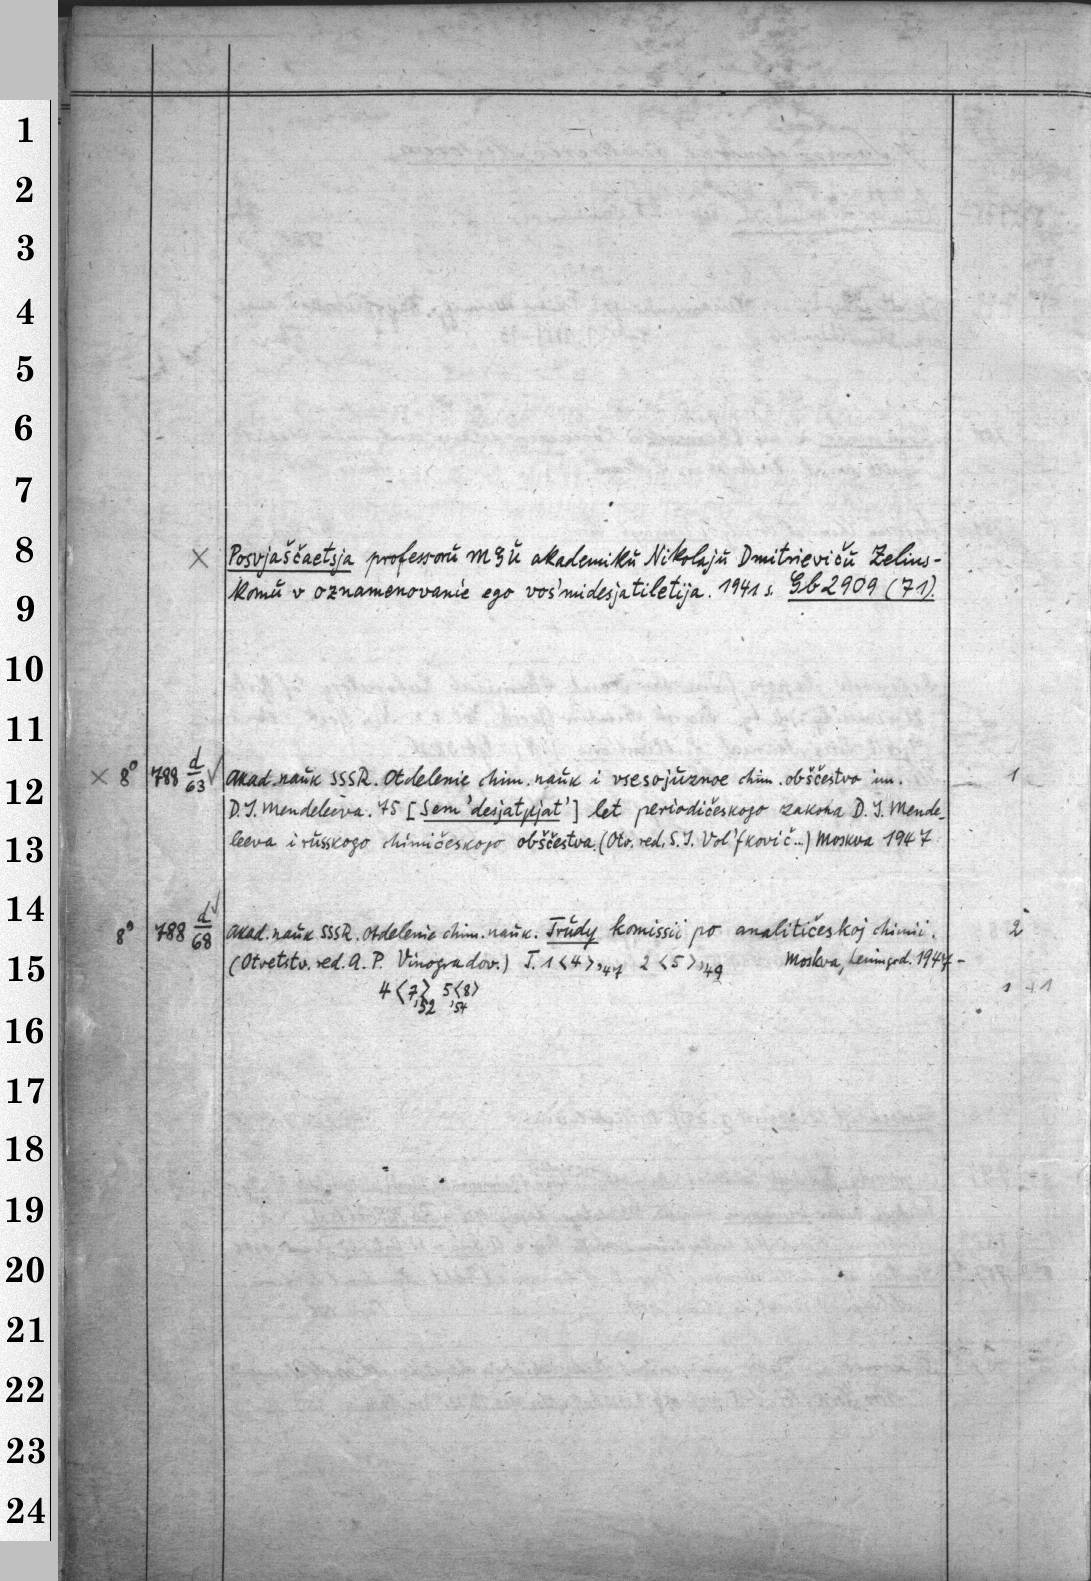 1
2
3
4
5
6
7
8
9
10
11
12
13
14
15
16
17
18
19
20
21
22
23
24
× Posvjaščaetsja professorŭ MGŬ akademikŭ Nikolajŭ Dmitrievičŭ Zelins-
komŭ v oznamenovanie ego vos'midesjatiletija. 1941 s. Gb 2909 (71).
× 8° 788 d/63 √ Akad. naŭk SSSR. Otdelenie chim. naŭk i vsesojŭznoe chim. obščestvo im. 1
D. I. Mendeleeva. 75 [Sem'desjatpjat'] let periodičeskogo zakona D. I. Mende-
leeva i rŭsskogo chimičeskogo obščestva. (Otv. red. S. I. Vol'fkovič...) Moskva 1947
8° 788 d/68 √ Akad. naŭk SSSR. Otdelenie chim. naŭk. Trŭdy komissii po analitičeskoj chimii. 2
(Otvetstv. red. A. P. Vinogradov.) T. 1<4>,'47 2<5>,'49 Moskva, Leningrad. 1947-
4<7>,'52 5<8>,'54 1 + 1